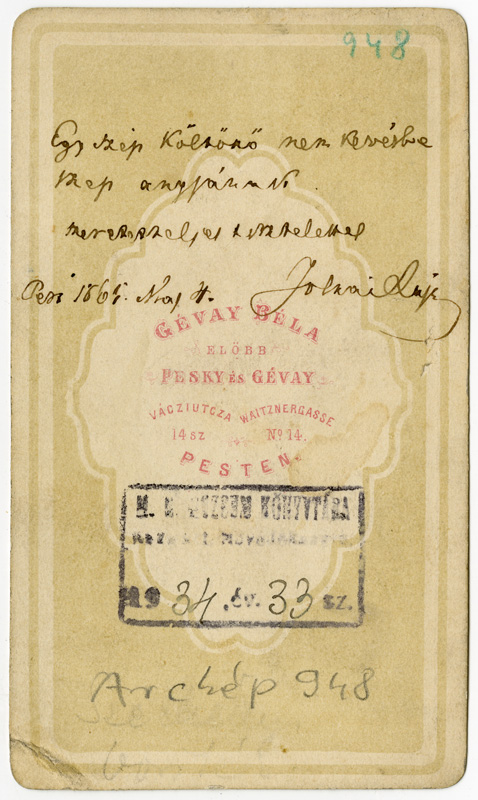 948
Egy szép költőnő nem kevésbe
szép anyjának.
szeretetteljes tisztelettel
Pest 1865. Maj 4.
GÉVAY BÉLA
ELÖBB
PESKY ÉS GÉVAY
VÁCZIUTCZA WAITZNERGASSE
14 SZ No 14.
PESTEN.
M. N. MUZEUM KÖNYVTÁRA
1934. év. 33 sz.
Arckép 948